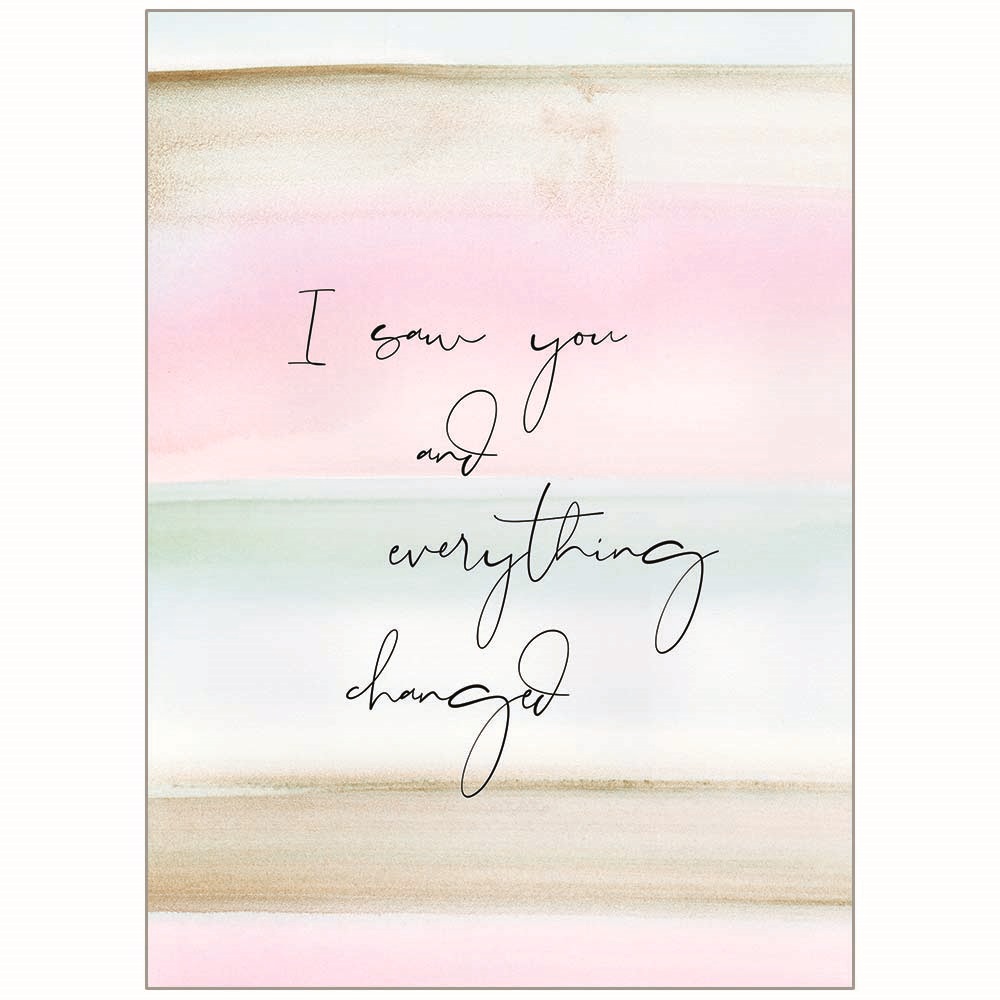 I saw you
and
everything
changed